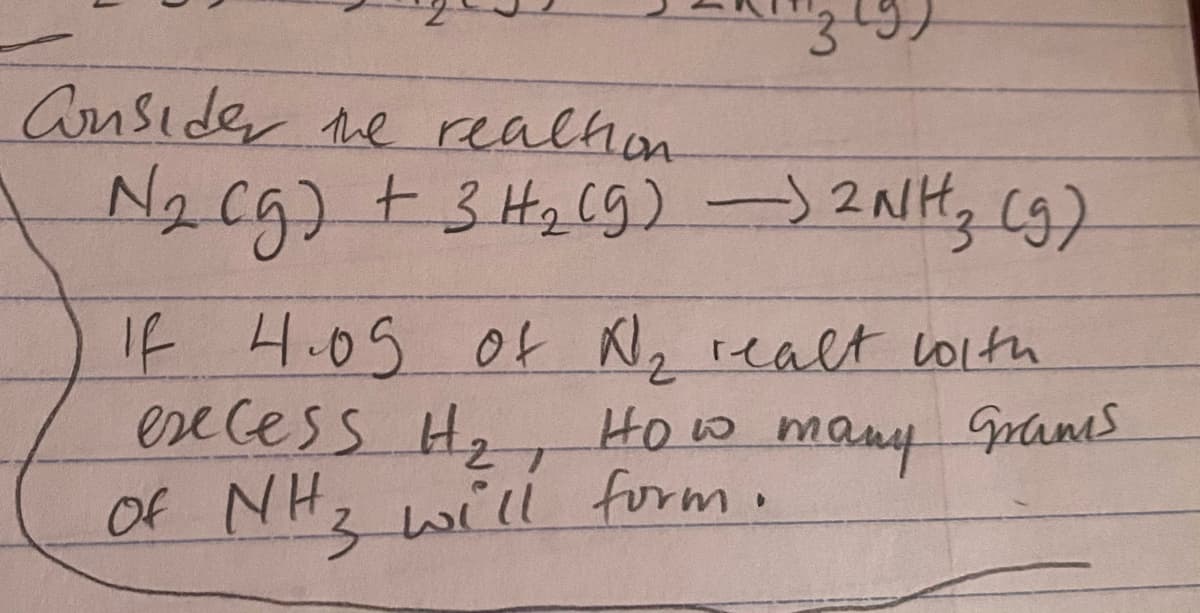 3 (g)
Consider the reaction
N₂ (g) + 3 H₂ (g) → 2 NH₃ (g)
If 4.0g of N₂ react with
execess H₂, How many grams
of NH₃ will form.